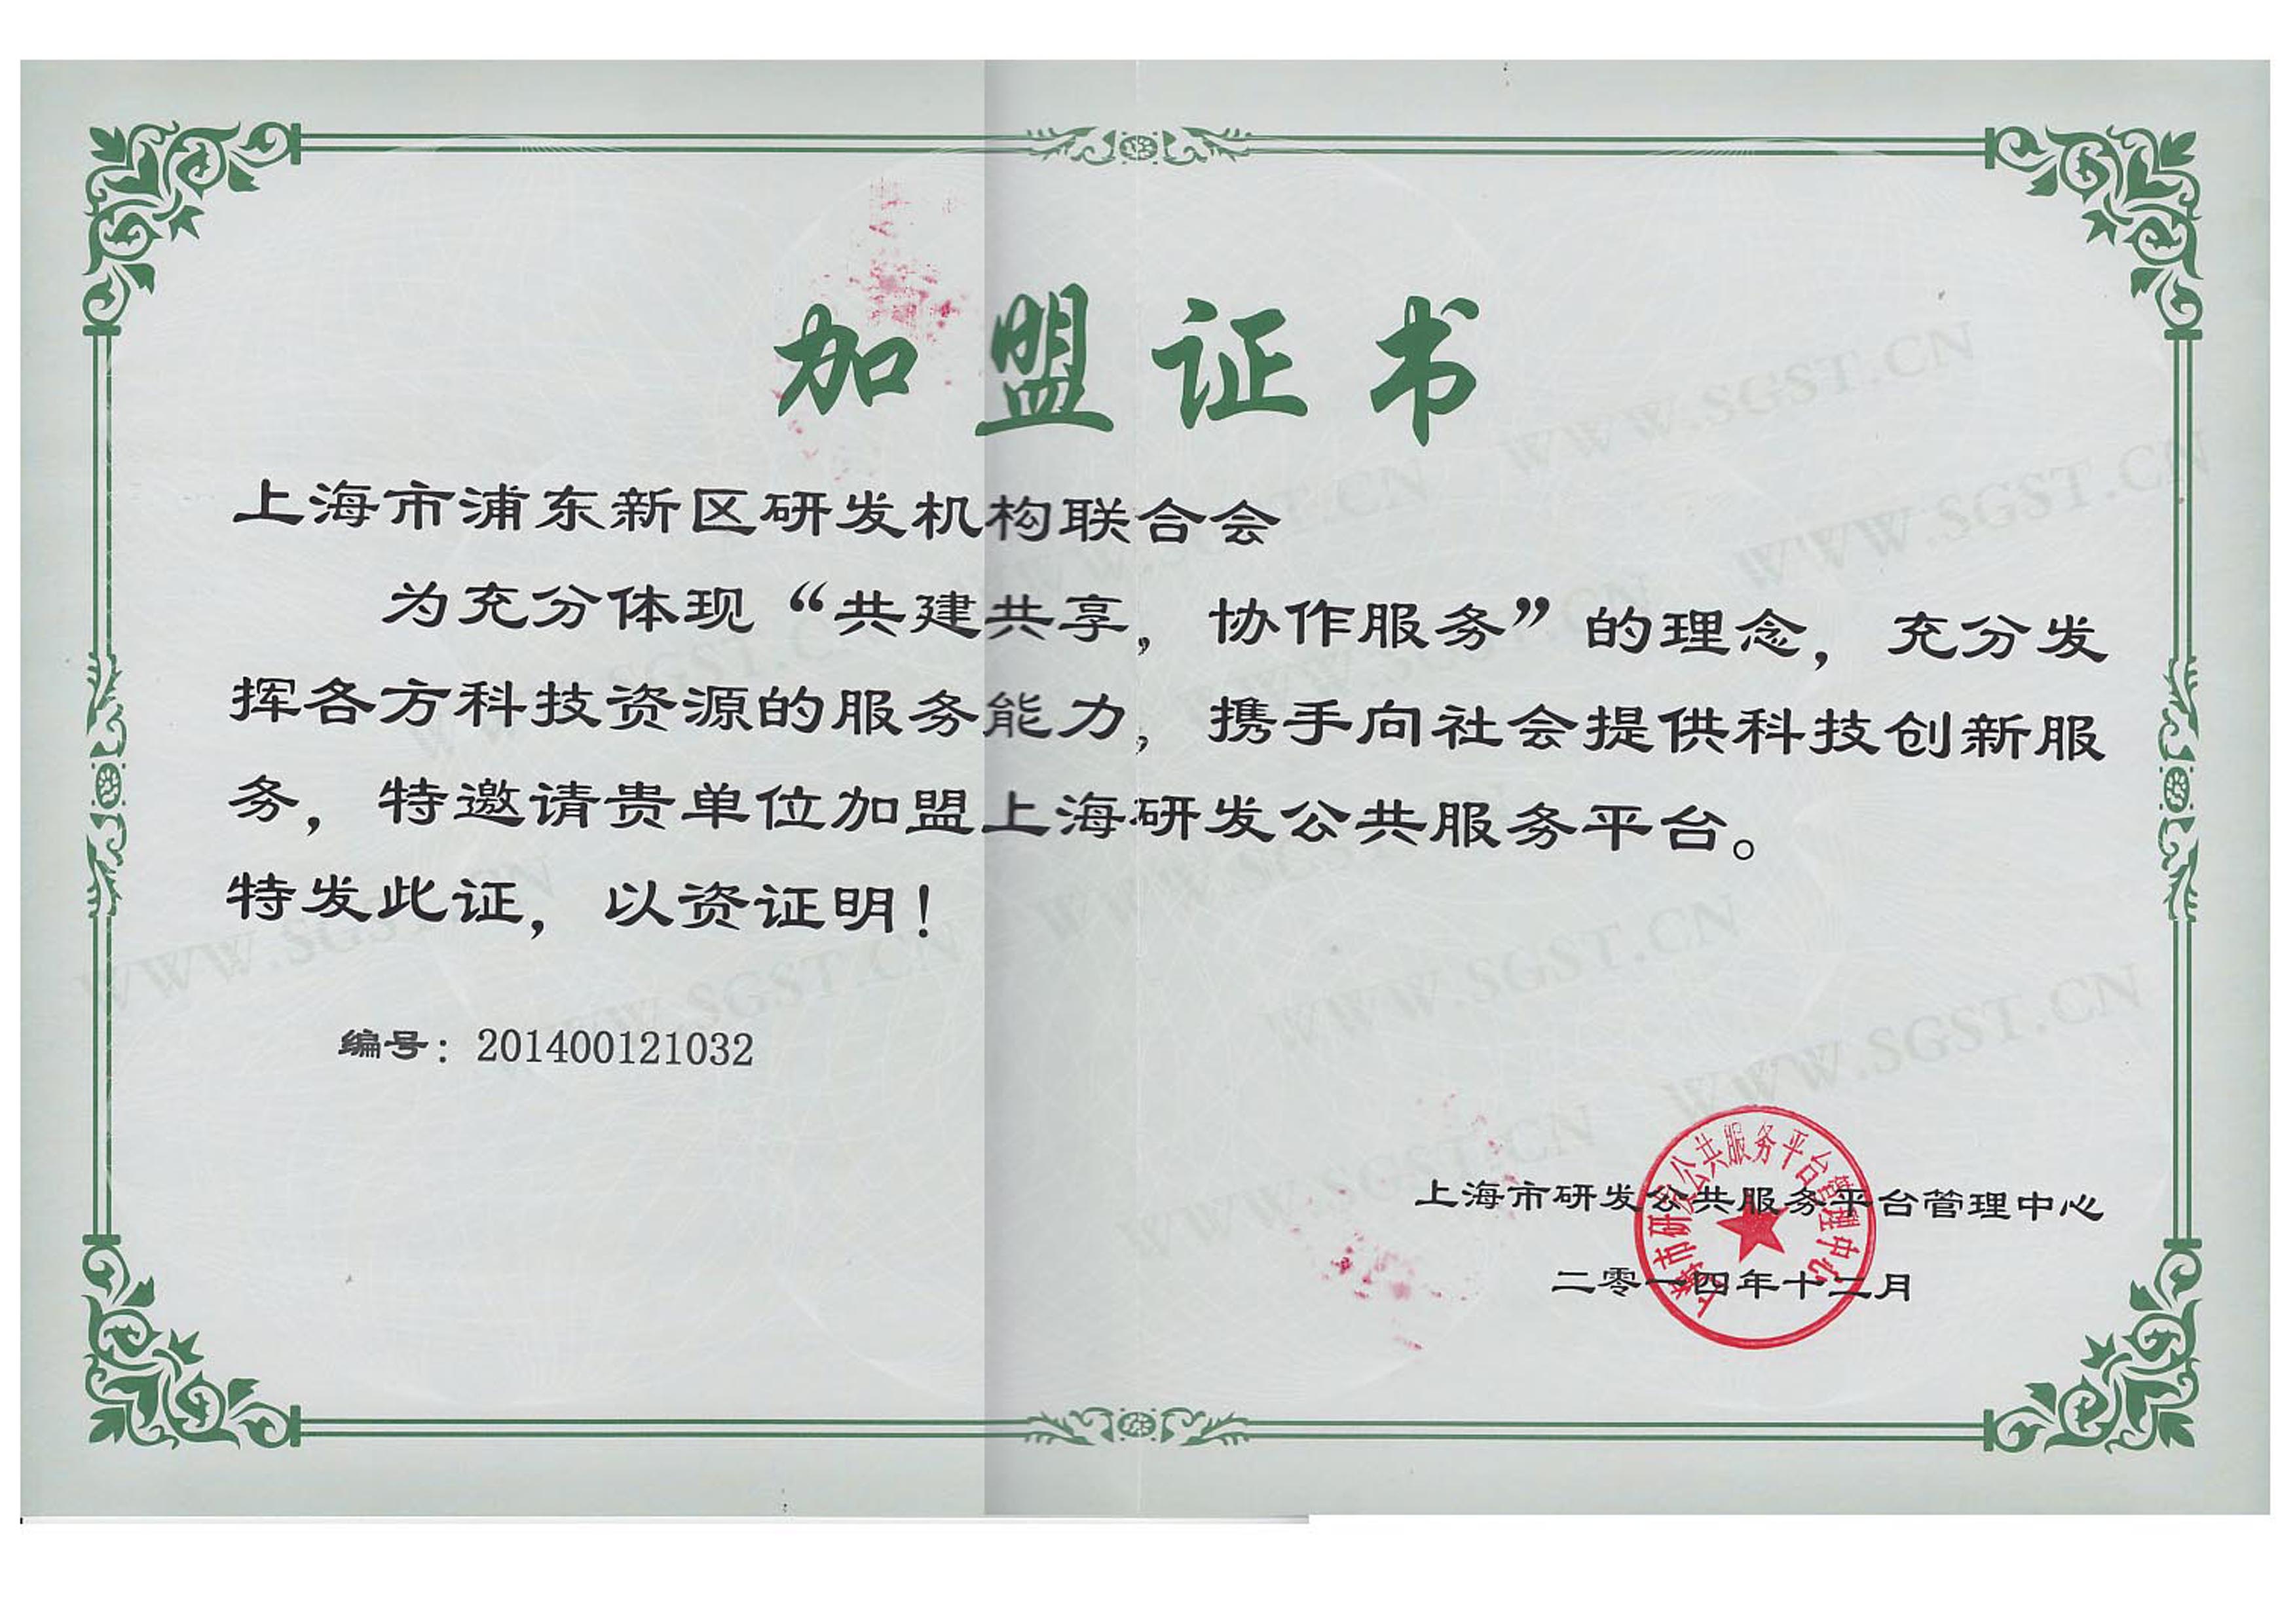 加盟证书
上海市浦东新区研发机构联合会
为充分体现“共建共享，协作服务”的理念，充分发
挥各方科技资源的服务能力，携手向社会提供科技创新服
务，特邀请贵单位加盟上海研发公共服务平台。
特发此证，以资证明！
编号：201400121032
上海市研发公共服务平台管理中心
二零一四年十二月
上海市研发公共服务平台管理中心
WWW.SGST.CN
WWW.SGST.CN
WWW.SGST.CN
WWW.SGST.CN
WWW.SGST.CN